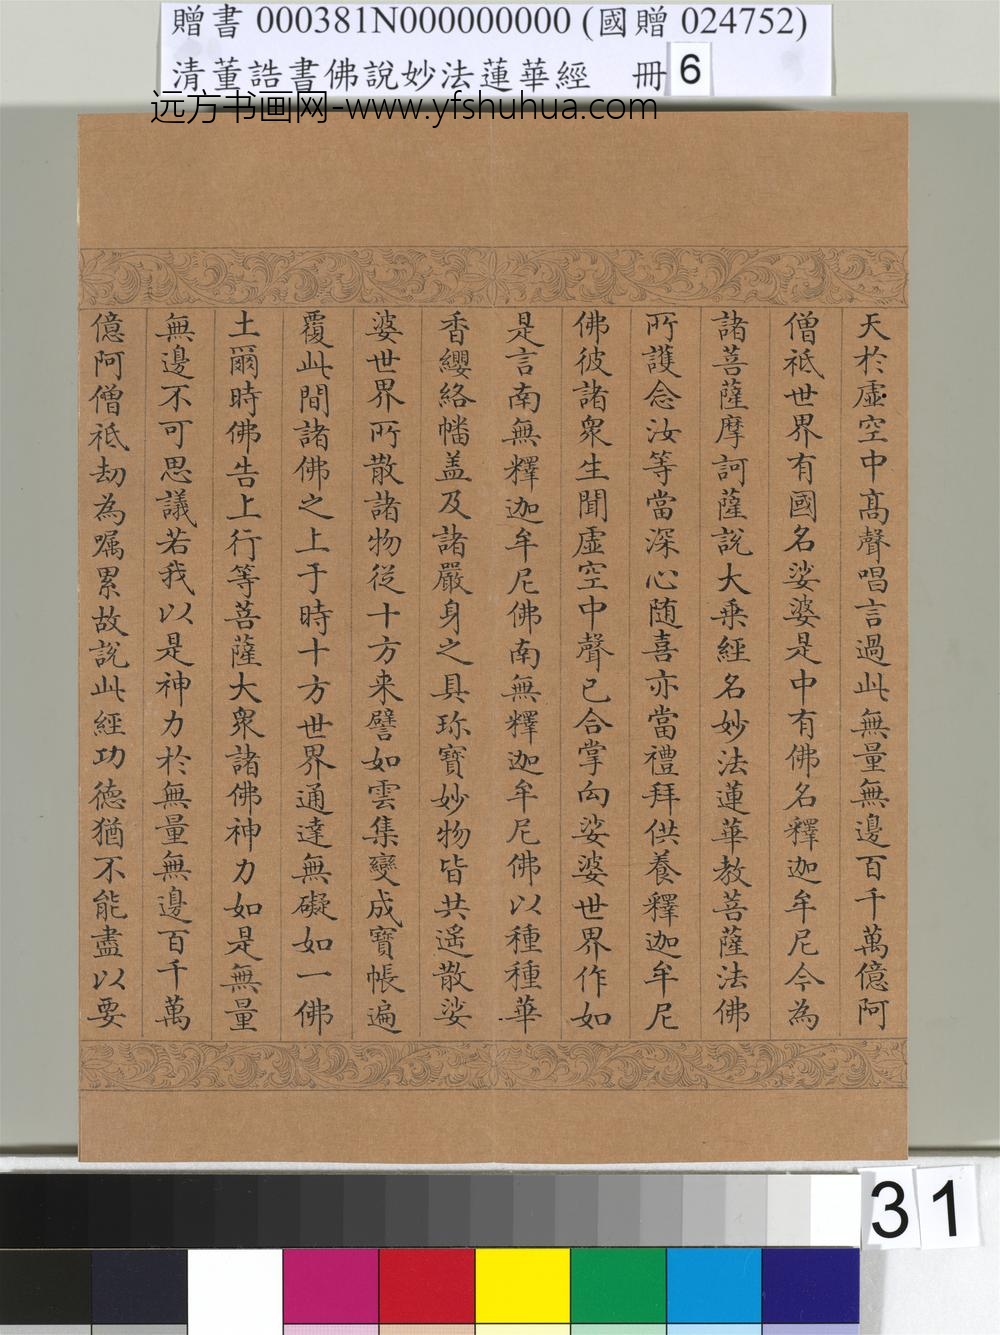 贈書 000381N000000000 (國贈 024752)
清董誥書佛說妙法蓮華經 冊 6
远方书画网-www.yfshuhua.com
天於虛空中高聲唱言過此無量無邊百千萬億阿
僧祇世界有國名娑婆是中有佛名釋迦牟尼今為
諸菩薩摩訶薩說大乘經名妙法蓮華教菩薩法佛
所護念汝等當深心随喜亦當禮拜供養釋迦牟尼
佛彼諸衆生聞虛空中聲已合掌向娑婆世界作如
是言南無釋迦牟尼佛南無釋迦牟尼佛以種種華
香纓絡幡盖及諸嚴身之具珎寶妙物皆共遥散娑
婆世界所散諸物從十方来譬如雲集變成寶帳遍
覆此間諸佛之上于時十方世界通達無礙如一佛
土爾時佛告上行等菩薩大衆諸佛神力如是無量
無邊不可思議若我以是神力於無量無邊百千萬
億阿僧祇劫為嘱累故說此經功德猶不能盡以要
31